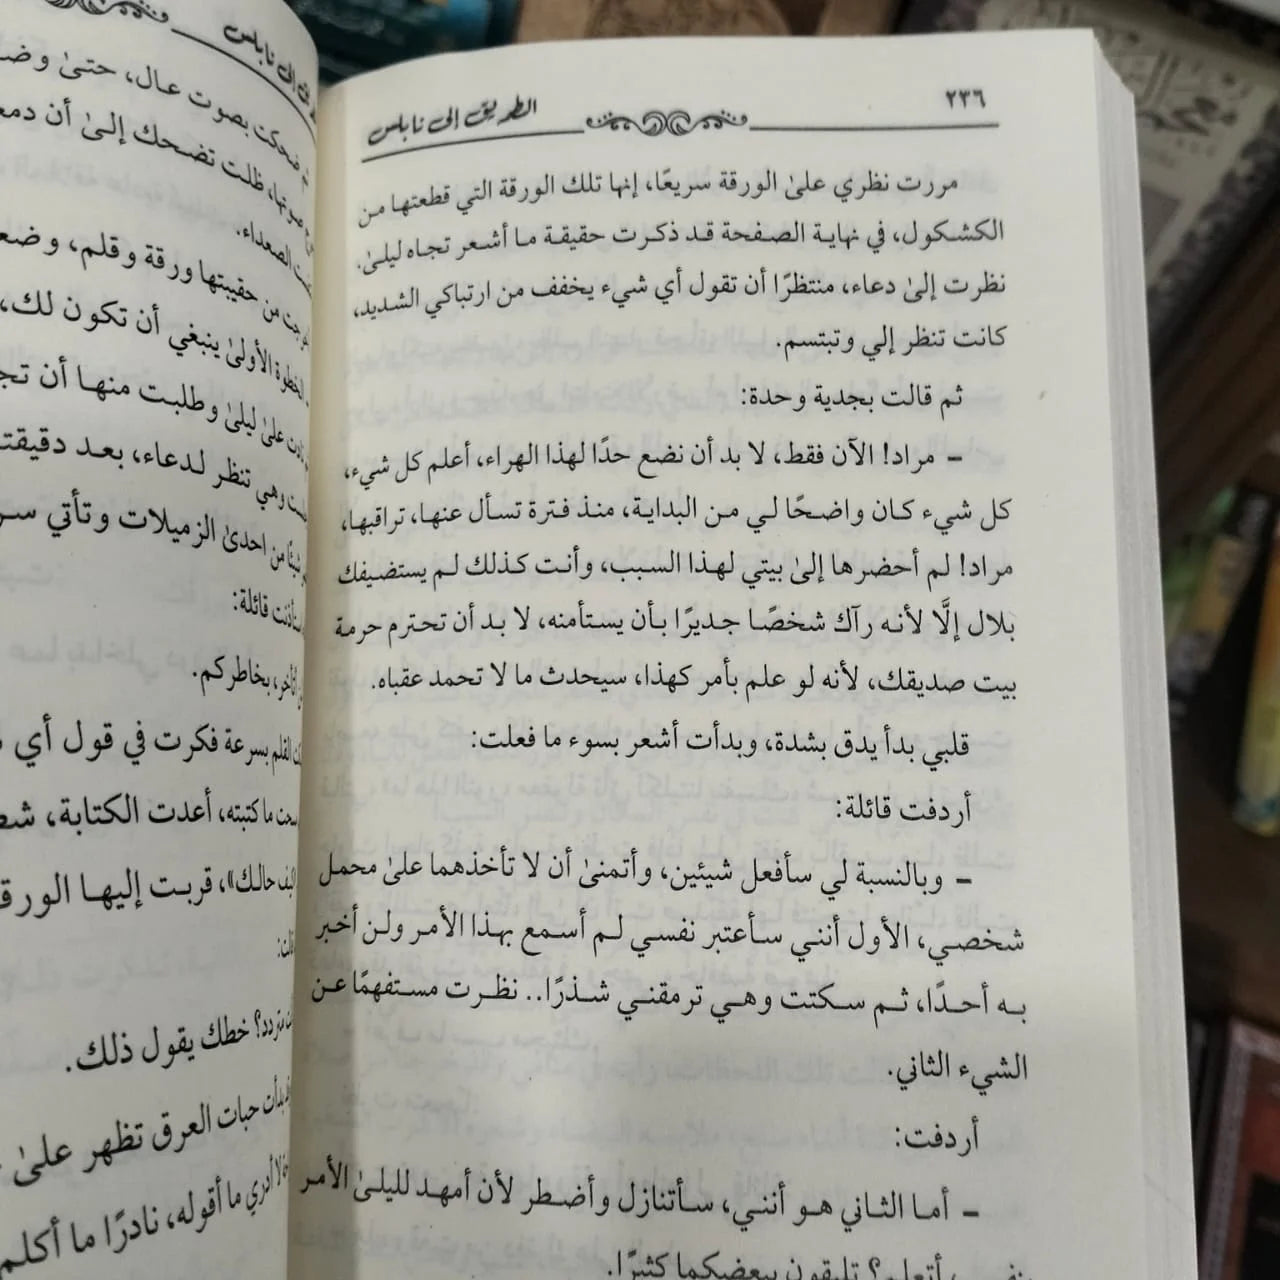 ٢٣٦
الطريق إلى نابلس
مررت نظري علىٰ الورقة سريعًا، إنها تلك الورقة التي قطعتها من
الكشكول، في نهاية الصفحة قد ذكرت حقيقة ما أشعر تجاه ليلىٰ.
نظرت إلىٰ دعاء، منتظرًا أن تقول أي شيء يخفف من ارتباكي الشديد،
كانت تنظر إلي وتبتسم.
ثم قالت بجدية وحدة:
– مراد! الآن فقط، لا بد أن نضع حدًا لهذا الهراء، أعلم كل شيء،
كل شيء كان واضحًا لي من البداية، منذ فترة تسأل عنها، تراقبها،
مراد! لم أحضرها إلىٰ بيتي لهذا السبب، وأنت كذلك لم يستضيفك
بلال إلَّا لأنه رآك شخصًا جديرًا بأن يستأمنه، لا بد أن تحترم حرمة
بيت صديقك، لأنه لو علم بأمر كهذا، سيحدث ما لا تحمد عقباه.
قلبي بدأ يدق بشدة، وبدأت أشعر بسوء ما فعلت:
أردفت قائلة:
– وبالنسبة لي سأفعل شيئين، وأتمنىٰ أن لا تأخذهما علىٰ محمل
شخصي، الأول أنني سأعتبر نفسي لم أسمع بهذا الأمر ولن أخبر
به أحدًا، ثم سكتت وهي ترمقني شذرًا.. نظرت مستفهمًا عن
الشيء الثاني.
أردفت:
– أما الثاني هو أنني، سأتنازل وأضطر لأن أمهد لليلىٰ الأمر
أتعلم؟ تليقون ببعضكما كثيرًا.
إلى نابلس
ضحكت بصوت عال، حتىٰ
ظلت تضحك إلىٰ أن
الصعداء.
من حقيبتها ورقة وقلم،
الخطوة الأولىٰ ينبغي أن تكون لك،
علىٰ ليلىٰ وطلبت منها أن
وهي تنظر لدعاء، بعد
من احدىٰ الزميلات وتأتي
قائلة:
بخاطركم.
القلم بسرعة فكرت في قول أي
ما كتبته، أعدت الكتابة،
حالك»، قربت إليها
خطك يقول ذلك.
حبات العرق تظهر علىٰ
أدري ما أقوله، نادرًا ما أكلم